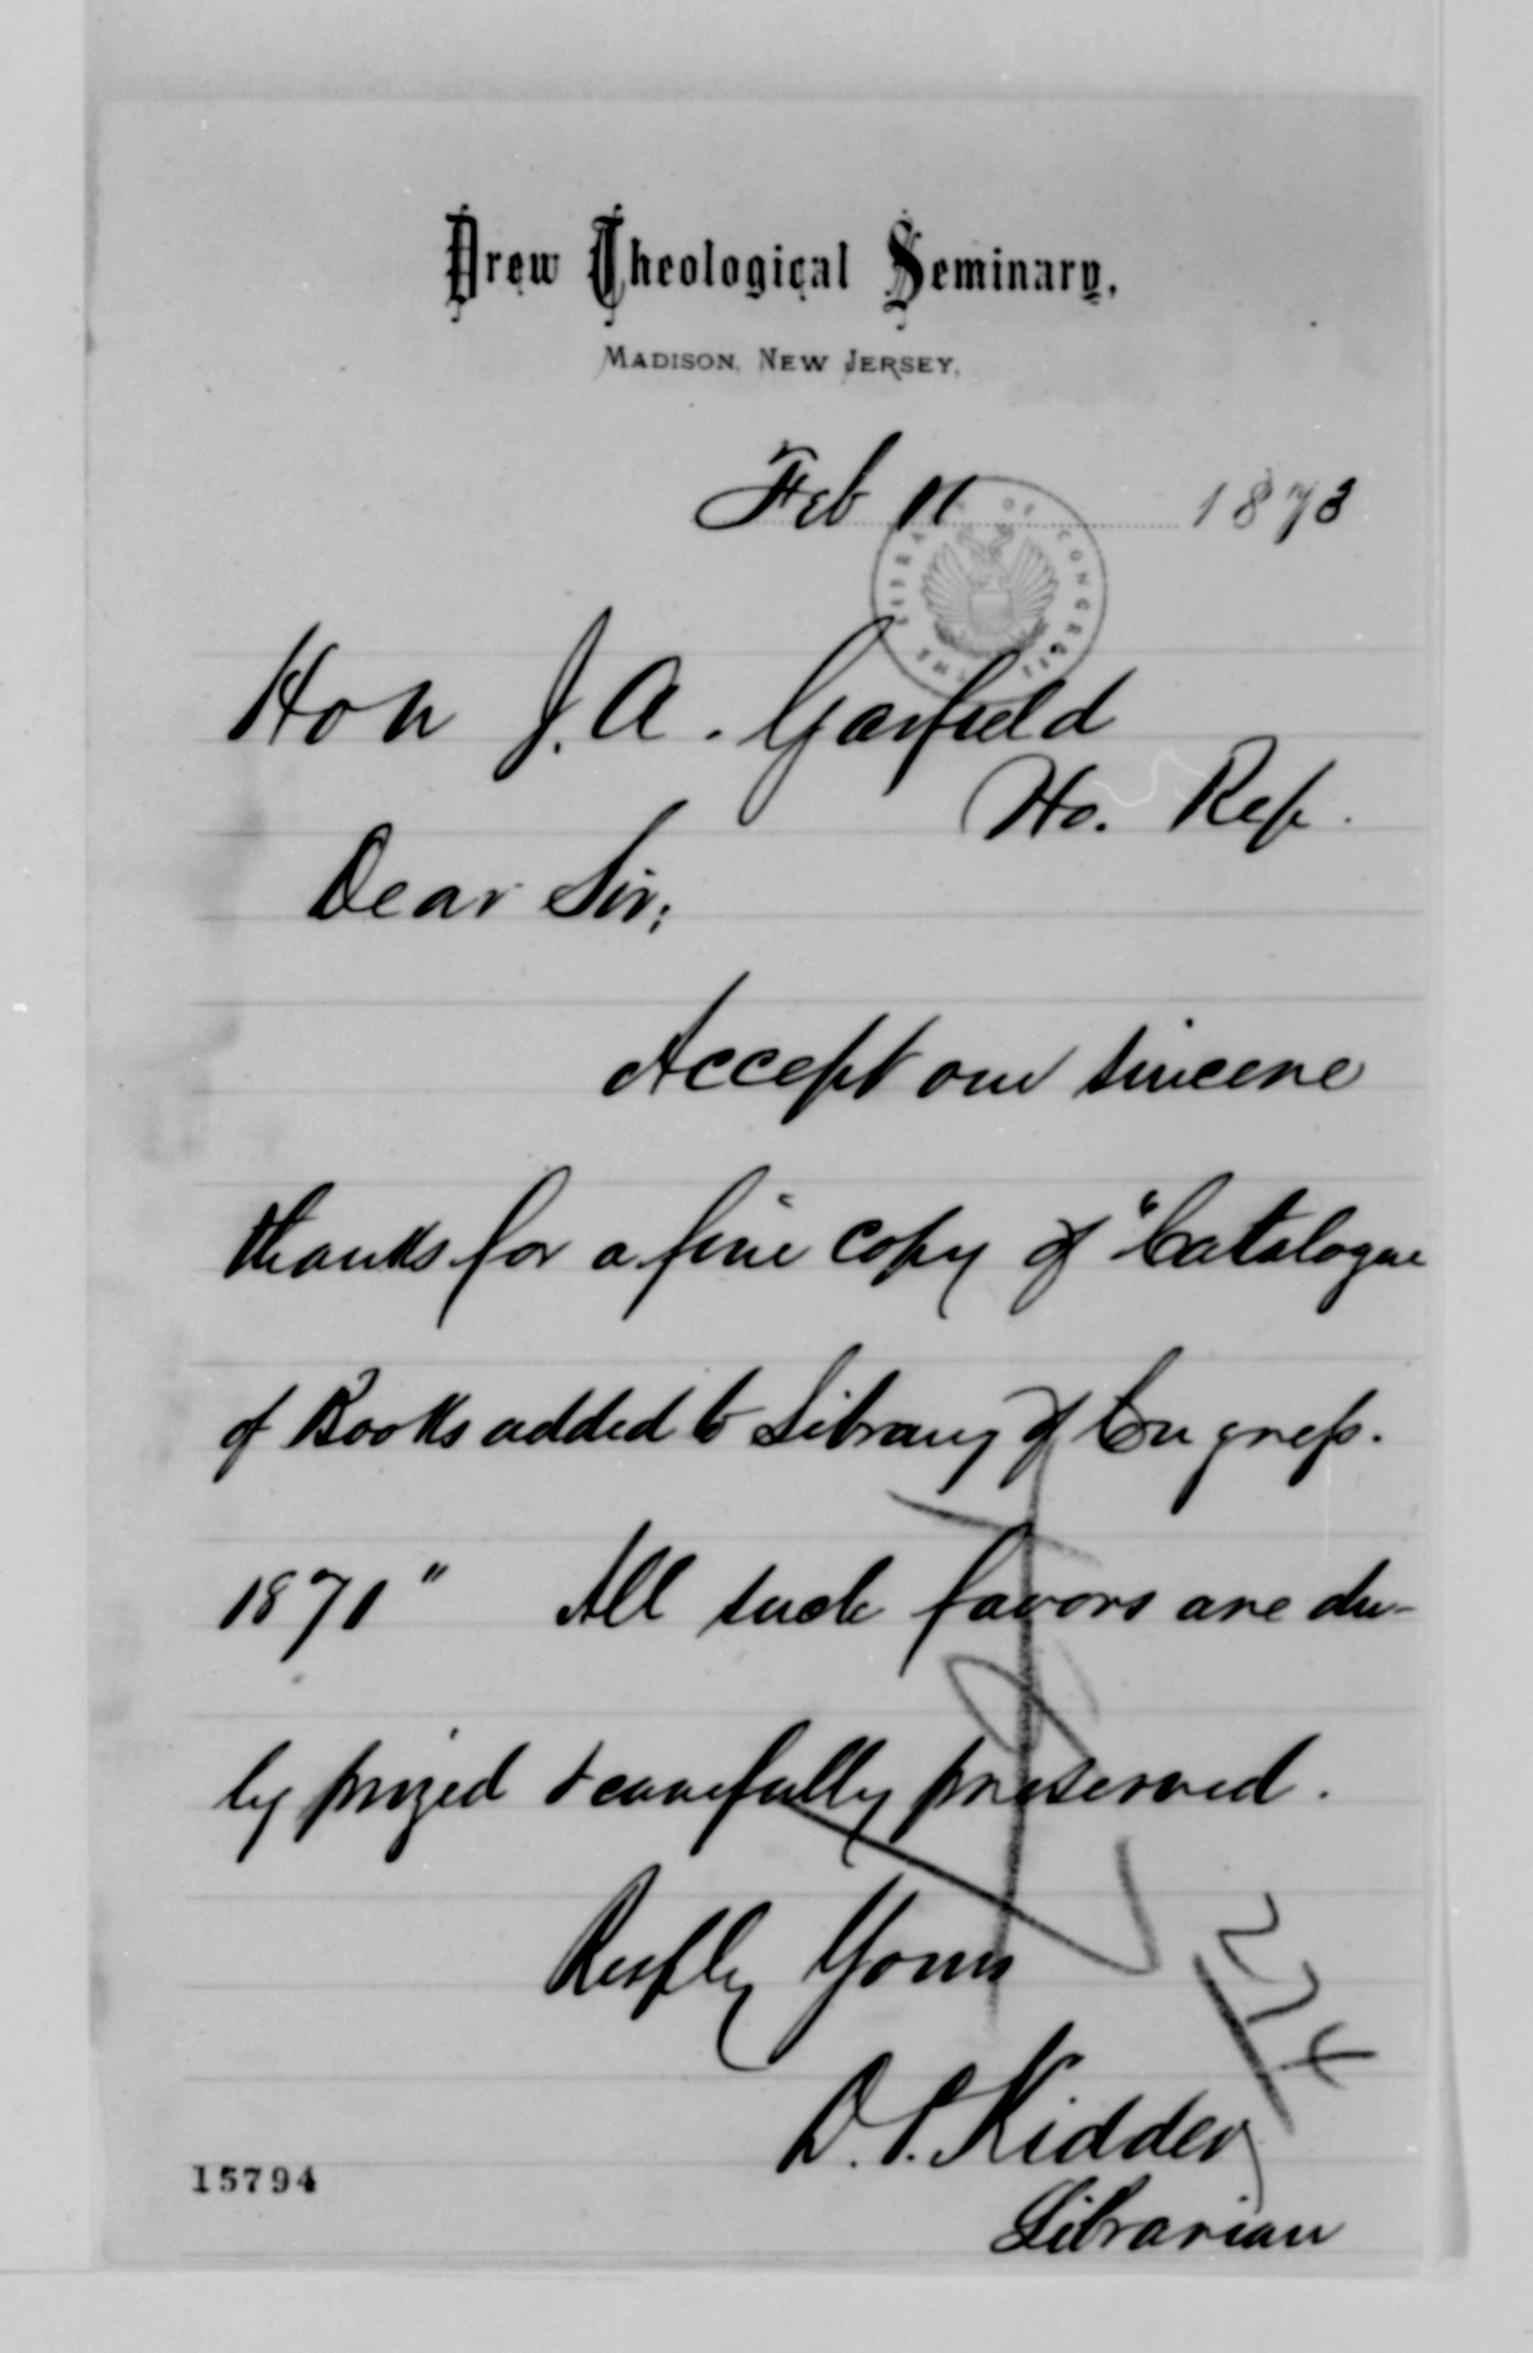 Drew Theological Seminary,
MADISON, NEW JERSEY,
Feb 11 1873
THE LIBRARY OF CONGRESS
Hon J. A. Garfield
Ho. Rep.
Dear Sir:
Accept our sincere
thanks for a fine copy of "Catalogue
of Books added to Library of Congress.
1871" All such favors are du-
ly prized & carefully preserved.
Respfly Yours
D. P. Kidder
Librarian
15794